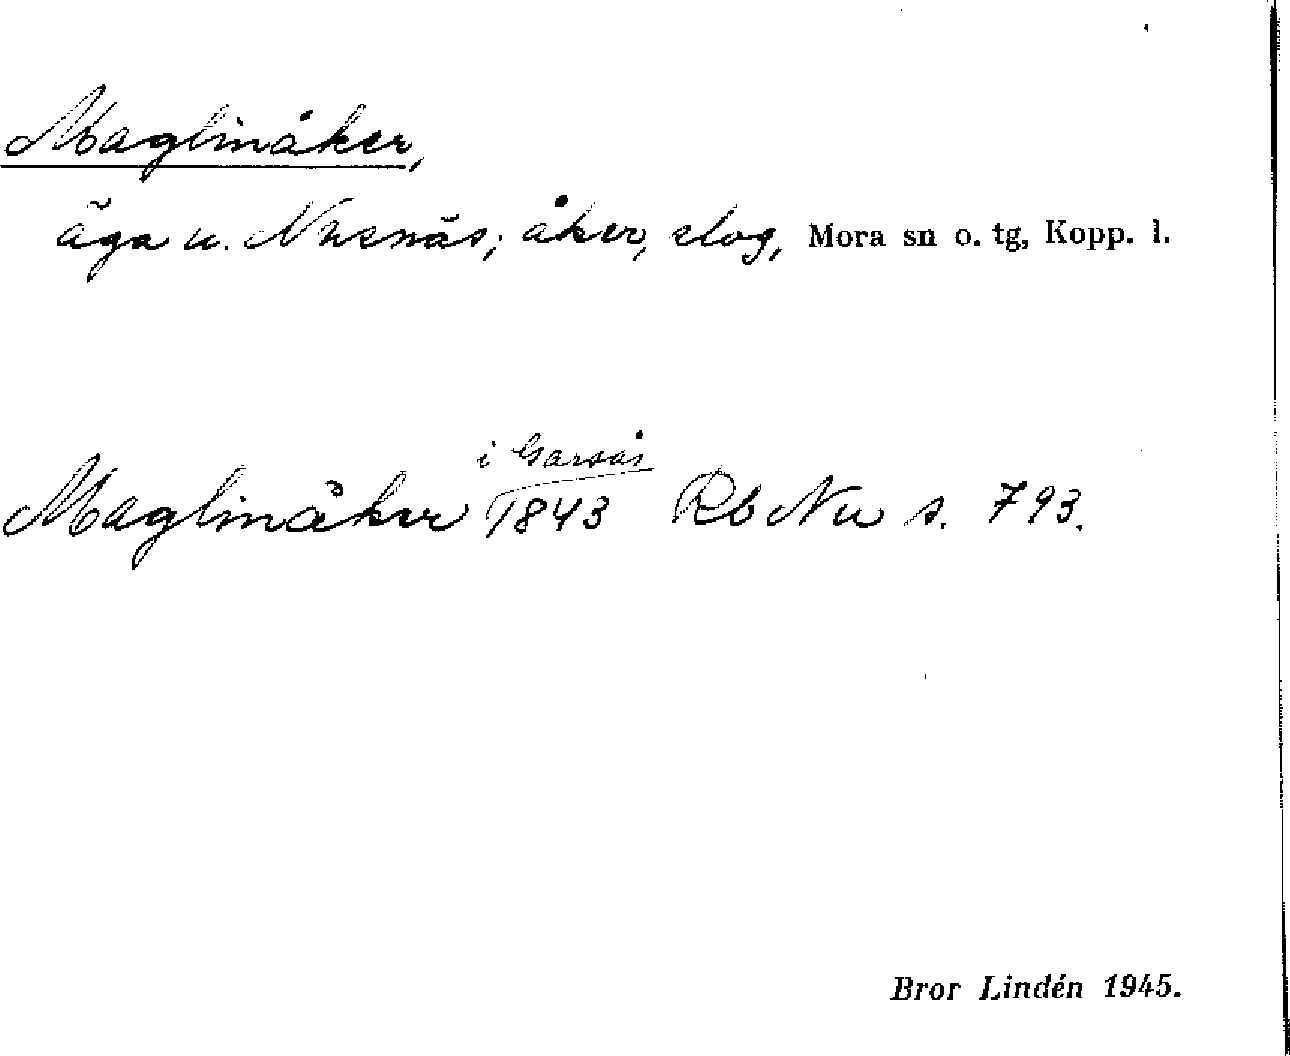 Maglinåker,
äga u. Nusnäs; åker, slog, Mora sn o. tg, Kopp. l.
i Garsås
Maglinåker 1843 Rb Nu s. 793.
Bror Lindén 1945.